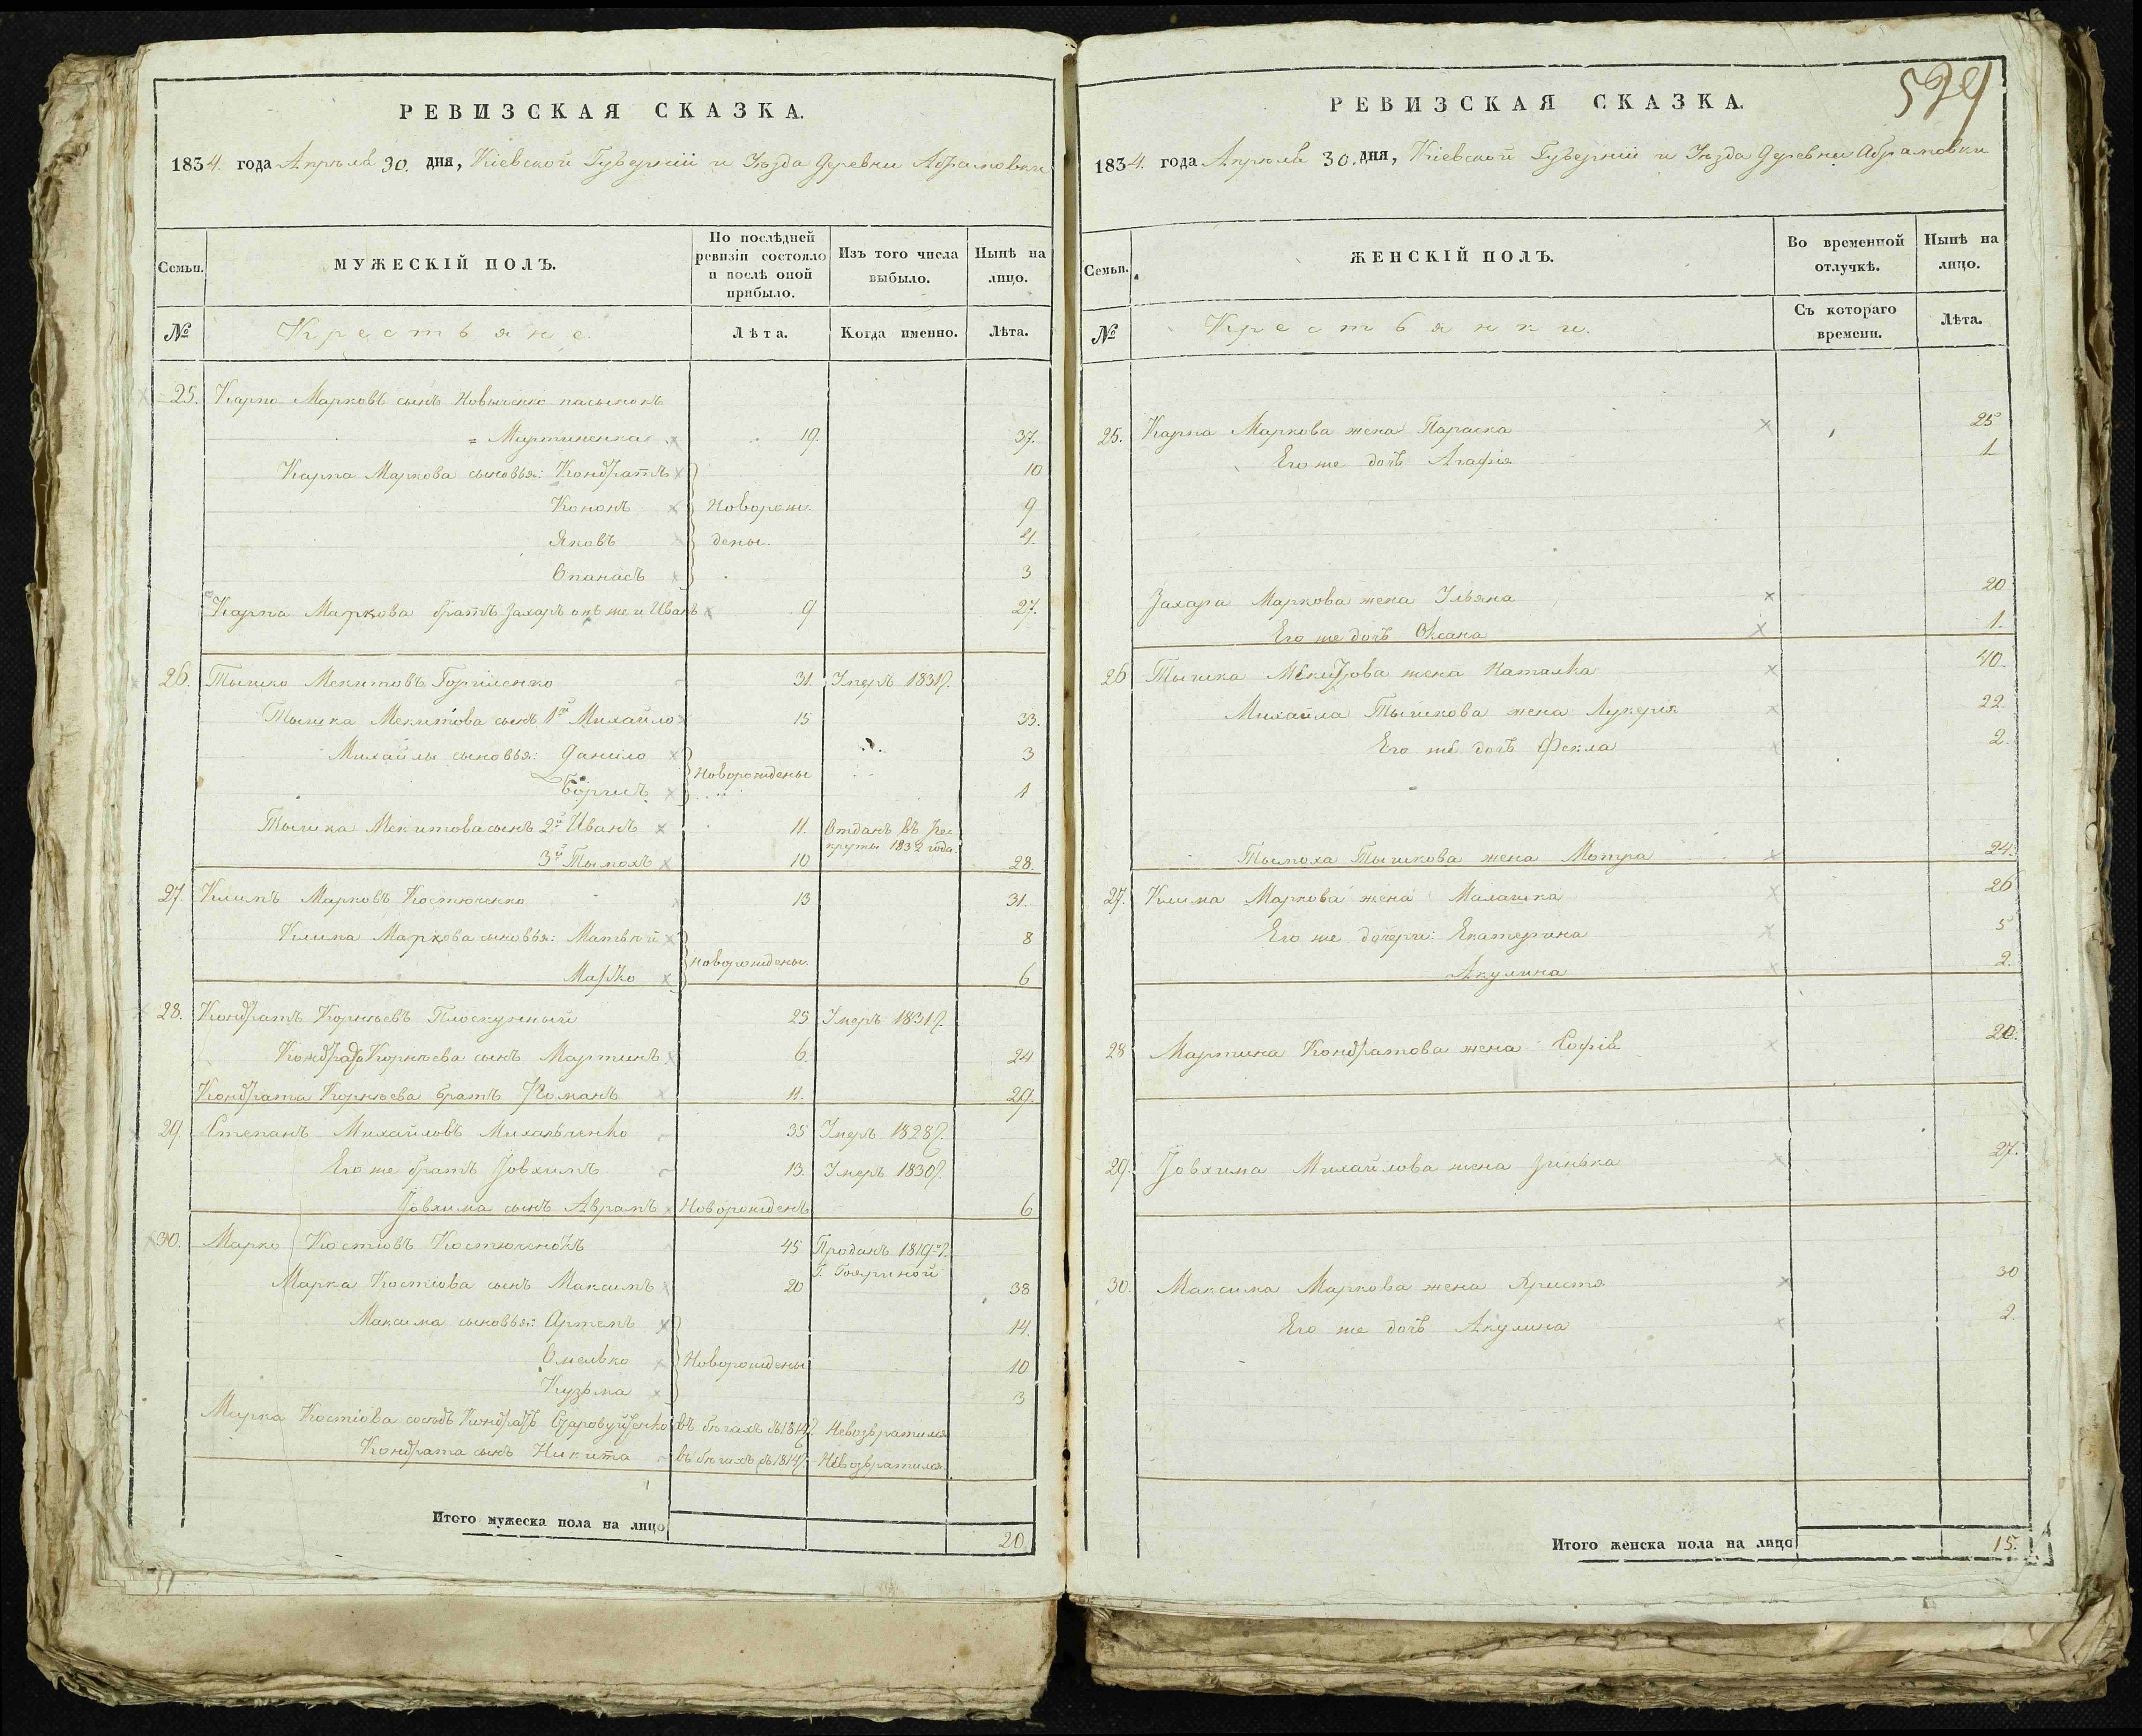 РЕВИЗСКАЯ СКАЗКА.
1834. года Апреля 30. дня, Кіевской Губерніи и Уезда деревни Абрамовки
Семьи.
МУЖЕСКІЙ ПОЛЪ.
По послѣдней ревизіи состояло и послѣ оной прибыло.
Изъ того числа выбыло.
Нынѣ на лицо.
№
Крестьяне
Лѣта.
Когда именно.
Лѣта.
25. Карпо Марковъ сынъ Новыченко пасынокъ
= Мартиненка 19. 37.
Карпа Маркова сыновья: Кондратъ 10
Кононъ Новорож= 9
Яковъ дены. 4.
Опанасъ 3
Карпа Маркова братъ Захаръ онъ же и Иванъ 9 27.
26. Тышко Мекитовъ Горпиленко 31. Умеръ 1831 г.
Тышка Мекитова сынъ 1й Михайло 15 33.
Михайлы сыновья: Данило 3
Новорождены
Борисъ 1
Тышка Мекитова сынъ 2й Иванъ 11. Отданъ въ рек=
круты 1832 года.
3й Тымохъ 10 28.
27. Климъ Марковъ Костюченко 13 31.
Клима Маркова сыновья: Матвѣй 8
новорождены.
Марко 6
28. Кондратъ Корнѣевъ Плоскунный 25 Умеръ 1831 г.
Кондрата Корнѣева сынъ Мартинъ 6. 24
Кондрата Корнѣева братъ Романъ 11. 29.
29. Степанъ Михайловъ Михальченко 35 Умеръ 1828 г.
Его же братъ Іовхимъ 13. Умеръ 1830 г.
Іовхима сынъ Аврамъ Новорожденъ 6
30. Марко Костіовъ Костюченокъ 45 Проданъ 1819 г.
Марка Костіова сынъ Максимъ 20 38
Максима сыновья: Артемъ 14.
Омелько Новорождены 10
Кузьма 3
Марка Костіова сосѣдъ Кондратъ въ бѣгахъ съ 1814 г. Невозвратился
Кондрата сынъ Никита въ бѣгахъ съ 1814 г. Невозвратился.
Итого мужеска пола на лицо
20
529
РЕВИЗСКАЯ СКАЗКА.
1834. года Апреля 30. дня, Кіевской Губерніи и Уезда деревни Абрамовки
Семьи.
ЖЕНСКІЙ ПОЛЪ.
Во временной отлучкѣ.
Нынѣ на лицо.
№
Крестьянки.
Съ котораго времени.
Лѣта.
25. Карпа Маркова жена Параска 25
Его же дочь Агафія 1
Захара Маркова жена Ульяна 20
Его же дочь Оксана 1.
26 Тышка Мекитова жена Наталка 40.
Михайла Тышкова жена Лукерія 22.
Его же дочь Фекла 2.
Тымоха Тышкова жена Мотра 24.
27. Клима Маркова жена Малашка 26
Его же дочери: Екатерина 5
Акулина 2.
28 Мартина Кондратова жена Софія 20.
29. Іовхима Михайлова жена Зинька 27.
30. Максима Маркова жена Христя 30
Его же дочь Акулина 2.
Итого женска пола на лицо
15.